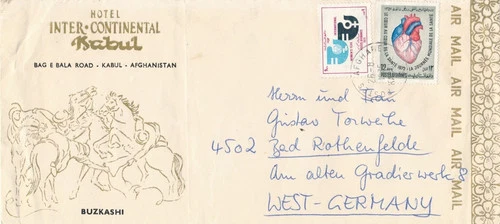 HOTEL
INTER·CONTINENTAL
Kabul
BAG E BALA ROAD · KABUL · AFGHANISTAN
BUZKASHI
Herrn und Frau
Gustav Torweihe
4502 Bad Rothenfelde
Am alten Gradierwerk 8
WEST-GERMANY
AIR MAIL AIR MAIL AIR MAIL AIR MAIL